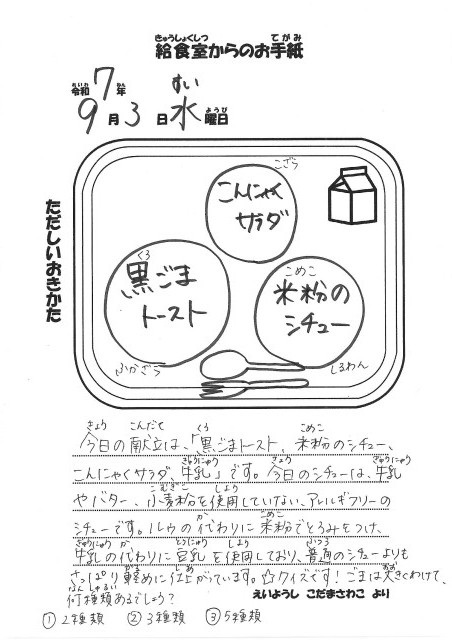 給食室からのお手紙
令和7年
9月3日水曜日
ただしいおきかた
こざら
こんにゃく
サラダ
黒ごま
トースト
ふかざら
米粉の
シチュー
しるわん
今日の献立は、「黒ごまトースト、米粉のシチュー、
こんにゃくサラダ、牛乳」です。今日のシチューは、牛乳
やバター、小麦粉を使用していない、アレルギーフリーの
シチューです。ルウの代わりに米粉でとろみをつけ、
牛乳の代わりに豆乳を使用しており、普通のシチューよりも
さっぱり軽めに仕上がっています。☆クイズです!ごまは大きくわけて、
何種類あるでしょう?
えいようし こだまさわこ より
①2種類 ②3種類 ③5種類